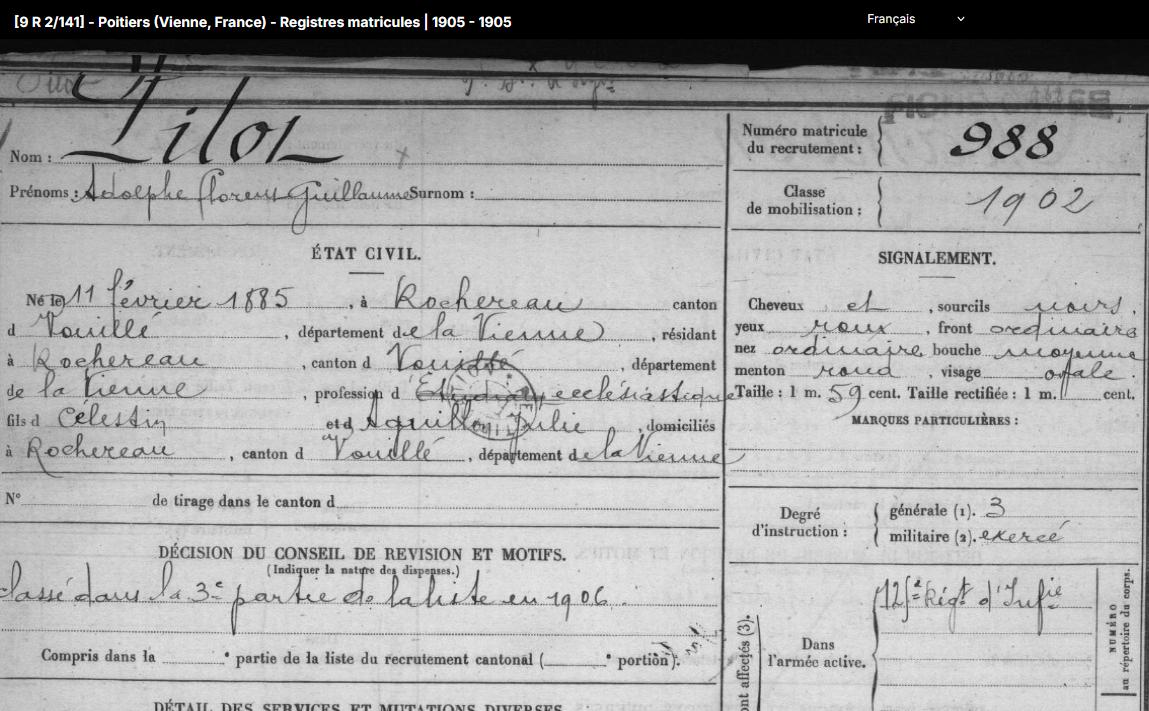 [9 R 2/141] - Poitiers (Vienne, France) - Registres matricules | 1905 - 1905
Français
Nom : Pilot
Prénoms : Adolphe florent Guillaume Surnom :
Numéro matricule du recrutement : 988
Classe de mobilisation : 1902
ÉTAT CIVIL.
Né le 11 février 1885, à Rochereau canton
d Vouillé, département de la Vienne, résidant
à Rochereau, canton d Vouillé, département
de la Vienne, profession d' Etudiant ecclésiastique
fils d Célestin et d Aquillon Julie, domiciliés
à Rochereau, canton d Vouillé, département de la Vienne
N° de tirage dans le canton d
SIGNALEMENT.
Cheveux et, sourcils noirs,
yeux roux, front ordinaire
nez ordinaire, bouche moyenne
menton rond, visage ovale.
Taille : 1 m. 59 cent. Taille rectifiée : 1 m. cent.
MARQUES PARTICULIÈRES :
Degré d'instruction :
générale (1). 3
militaire (2). exercé
DÉCISION DU CONSEIL DE REVISION ET MOTIFS.
(Indiquer la nature des dispenses.)
classé dans la 3e partie de la liste en 1906.
Compris dans la e partie de la liste du recrutement cantonal ( e portion).
DÉTAIL DES SERVICES ET MUTATIONS DIVERSES.
ont affectés (3).
Dans l'armée active.
125e Régt d'Infie
NUMÉRO
au répertoire du corps.